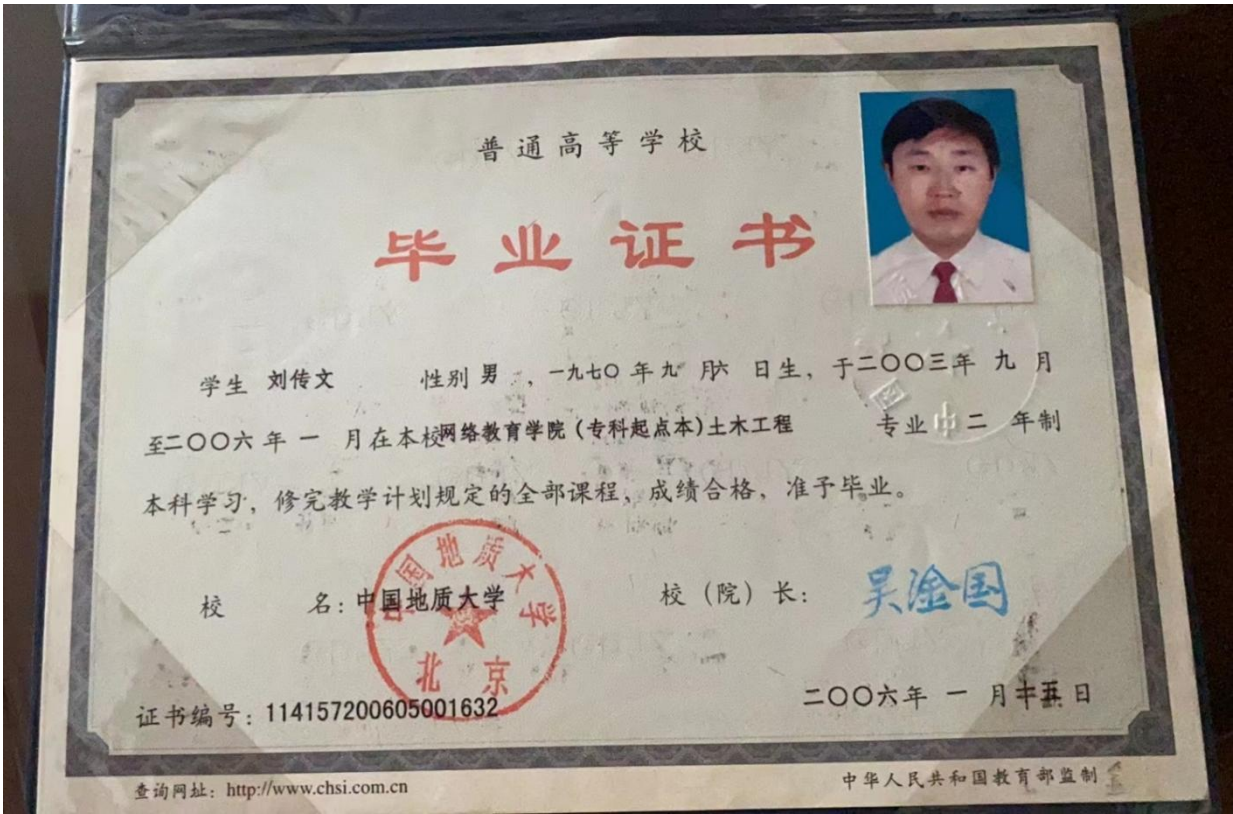 普通高等学校
毕业证书
学生 刘传文 性别 男 ，一九七〇年九月六日生，于二〇〇三年九月
至二〇〇六年一月在本校网络教育学院(专科起点本)土木工程 专业 二 年制
本科学习，修完教学计划规定的全部课程，成绩合格，准予毕业。
校 名：中国地质大学
中国地质大学
北京
校（院）长：吴淦国
二〇〇六年一月十五日
证书编号：114157200605001632
查询网址：http://www.chsi.com.cn
中华人民共和国教育部监制